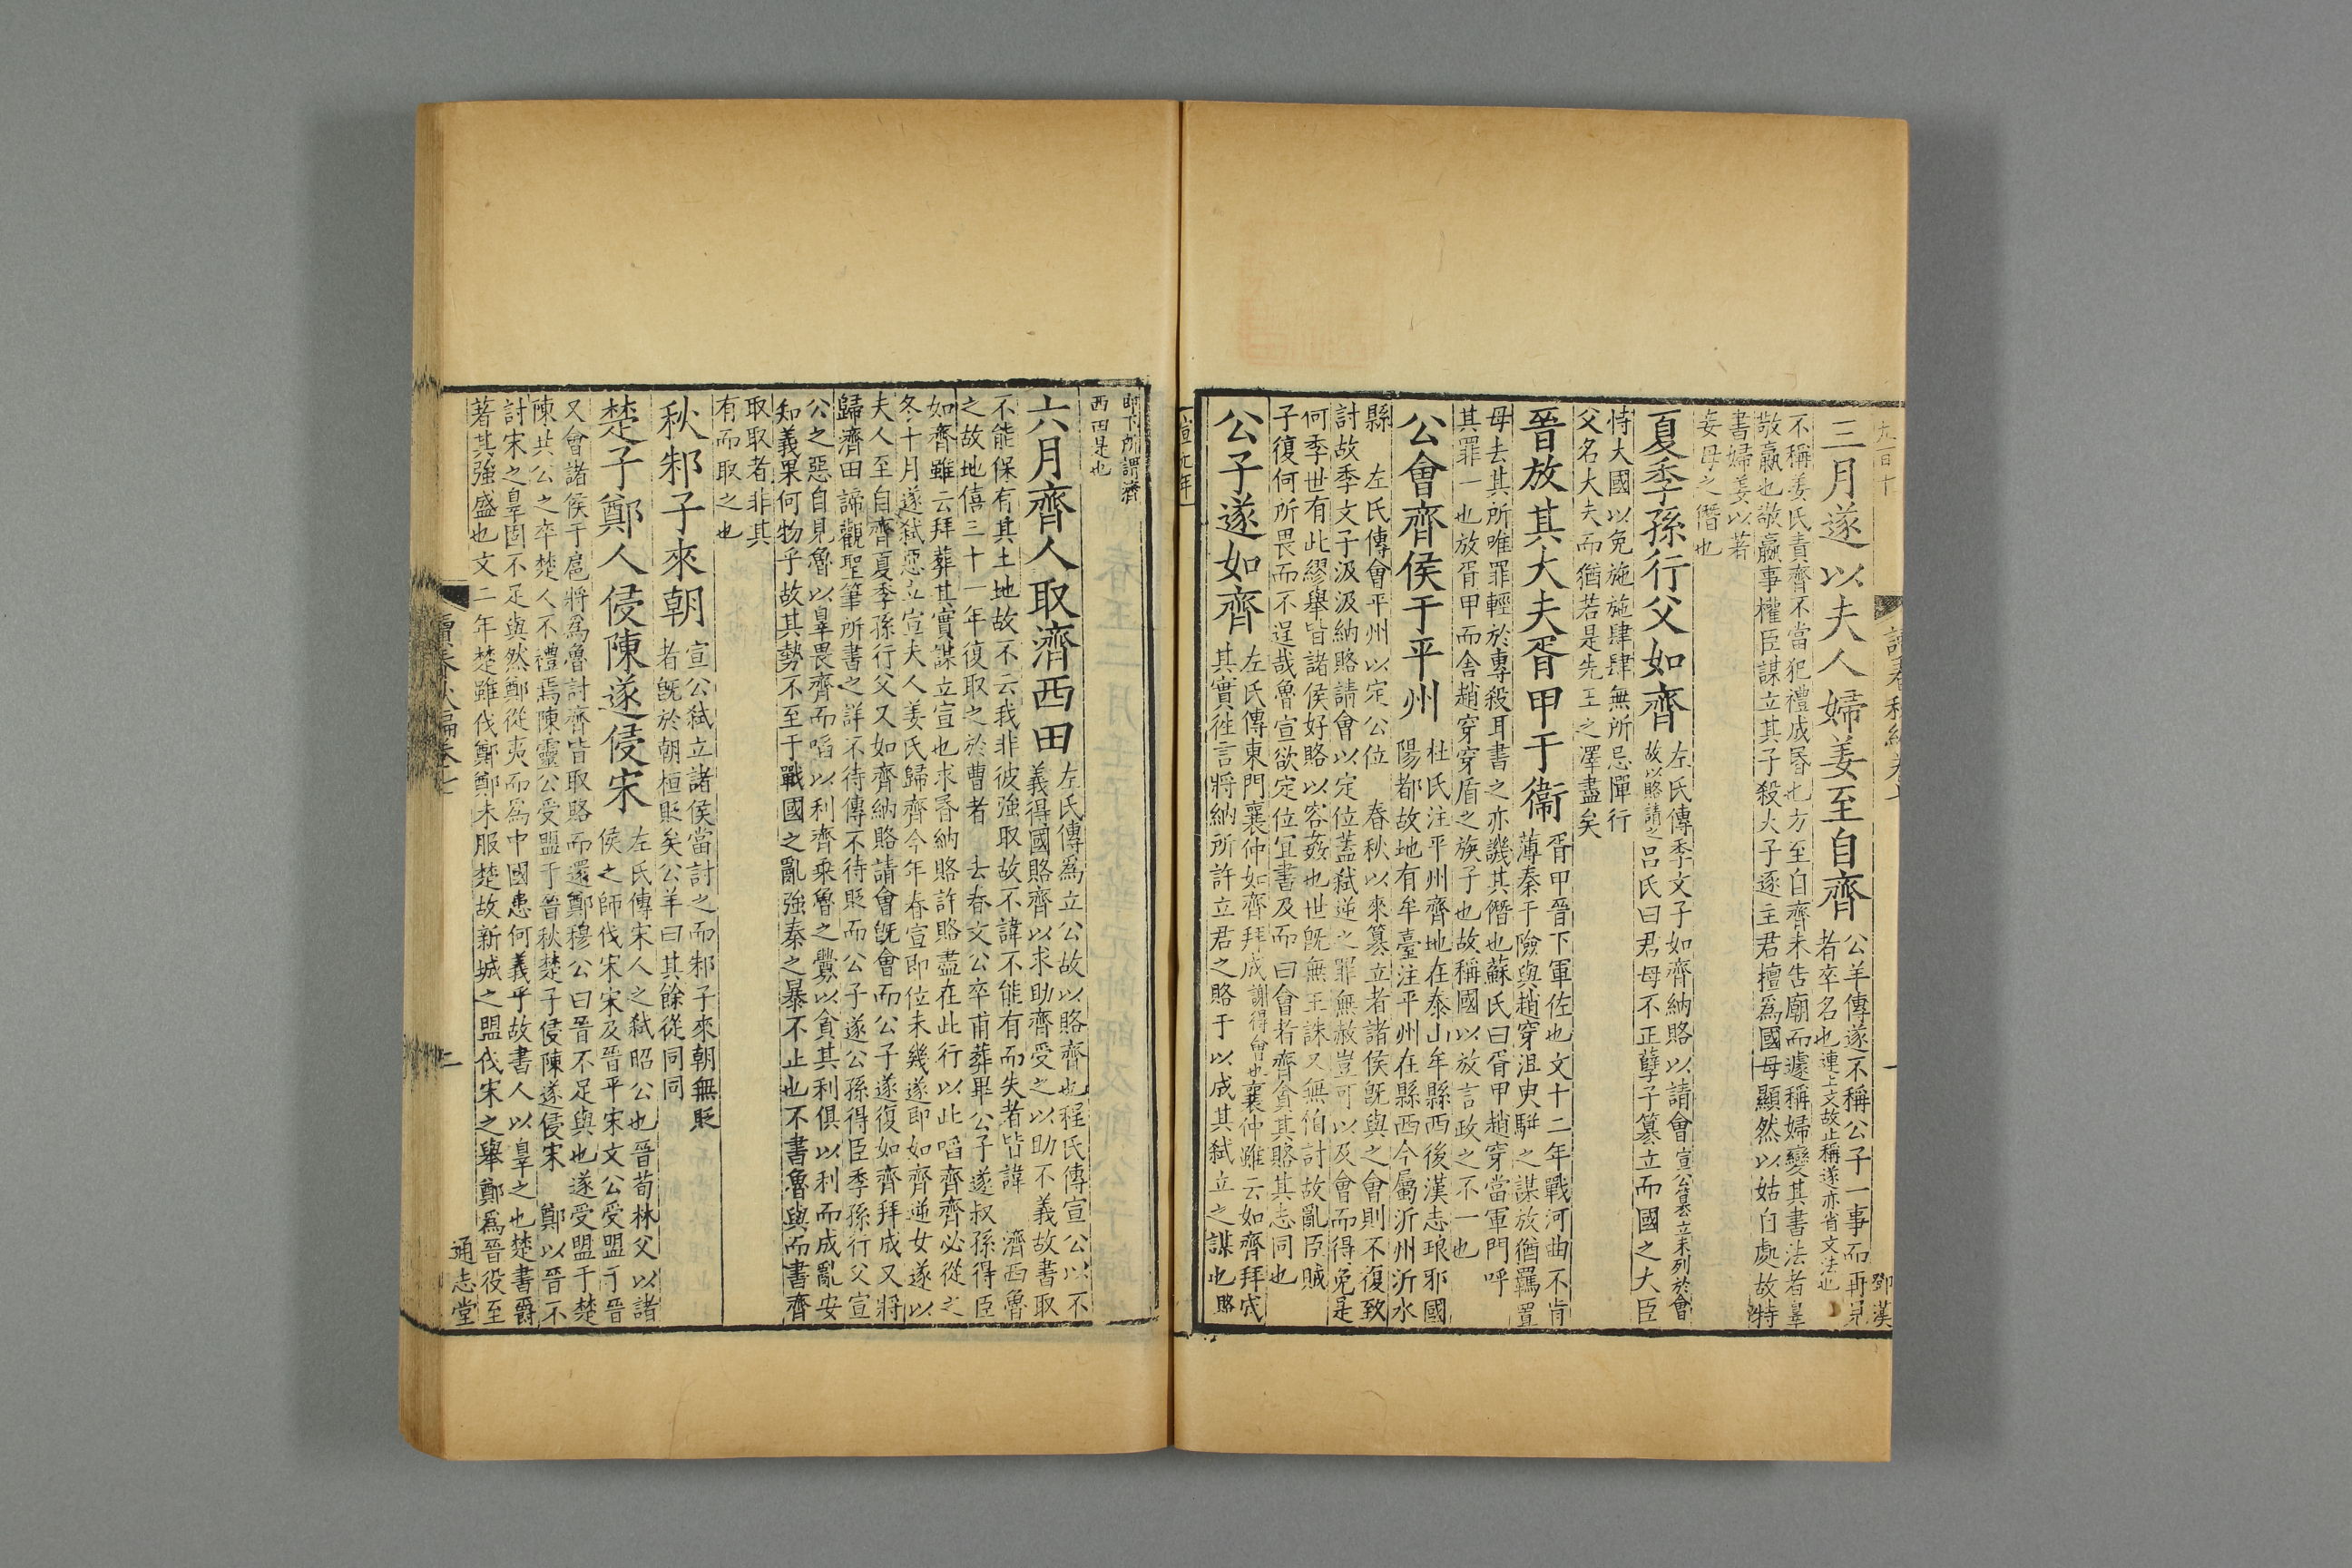 三月遂以夫人婦姜至自齊
公羊傳遂不稱公子一事而再見
者卒名也連上文故止稱遂亦省文法也
不稱姜氏責齊不當犯禮成昏也方至自齊未告廟而遽稱婦變其書法者辠
敬嬴也敬嬴事權臣謀立其子殺大子逐主君擅為國母顯然以姑自處故特
書婦姜以著
妾母之僭也
夏季孫行父如齊
左氏傳季文子如齊納賂以請會宣公簒立未列於會
故以賂請之呂氏曰君母不正孽子簒立而國之大臣
恃大國以免施施肆肆無所忌憚行
父名大夫而猶若是先王之澤盡矣
晉放其大夫胥甲于衞
胥甲晉下軍佐也文十二年戰河曲不肯
薄秦于險與趙穿沮臾駢之謀放猶羈置
毋去其所唯罪輕於專殺耳書之亦譏其僭也蘇氏曰胥甲趙穿當軍門呼
其罪一也放胥甲而舍趙穿穿盾之族子也故稱國以放言政之不一也
公會齊侯于平州
杜氏注平州齊地在泰山牟縣西後漢志琅邪國
陽都故地有牟臺注平州在縣西今屬沂州沂水
縣 左氏傳會平州以定公位 春秋以來簒立者諸侯既與之會則不復致
討故季文子汲汲納賂請會以定位蓋弑逆之罪無赦豈可以及會而得免是
何季世有此繆舉皆諸侯好賂以容姦也世既無王誅又無伯討故亂臣賊
子復何所畏而不逞哉魯宣欲定位宜書及而曰會者齊貪其賂其志同也
公子遂如齊
左氏傳東門襄仲如齊拜成謝得會也襄仲雖云如齊拜成
其實徃言將納所許立君之賂于以成其弑立之謀也賂
卽下所謂濟
西田是也
六月齊人取濟西田
左氏傳為立公故以賂齊也程氏傳宣公以不
義得國賂齊以求助齊受之以助不義故書取
不能保有其土地故不云我非彼強取故不諱不能有而失者皆諱 濟西魯
之故地僖三十一年復取之於曹者 去春文公卒甫葬畢公子遂叔孫得臣
如齊雖云拜葬其實謀立宣也求昏納賂許賂盡在此行以此啗齊齊必從之
冬十月遂弑惡立宣夫人姜氏歸齊今年春宣卽位未幾遂卽如齊逆女遂以
夫人至自齊夏季孫行父又如齊納賂請會既會而公子遂復如齊拜成又將
歸濟田諦觀聖筆所書之詳不待傳不待貶而公子遂公孫得臣季孫行父宣
公之惡自見魯以辠畏齊而啗以利齊乘魯之釁以貪其利俱以利而成亂安
知義果何物乎故其勢不至于戰國之亂強秦之暴不止也不書魯與而書齊
取取者非其
有而取之也
秋邾子來朝
宣公弑立諸侯當討之而邾子來朝無貶
者旣於朝桓貶矣公羊曰其餘從同同
楚子鄭人侵陳遂侵宋
左氏傳宋人之弑昭公也晉荀林父以諸
侯之師伐宋宋及晉平宋文公受盟于晉
又會諸侯于扈將為魯討齊皆取賂而還鄭穆公曰晉不足與也遂受盟于楚
陳共公之卒楚人不禮焉陳靈公受盟于晉秋楚子侵陳遂侵宋 鄭以晉不
討宋之辠固不足與然鄭從夷而為中國患何義乎故書人以辠之也楚書爵
著其強盛也文二年楚雖伐鄭鄭未服楚故新城之盟伐宋之舉鄭為晉役至
通志堂